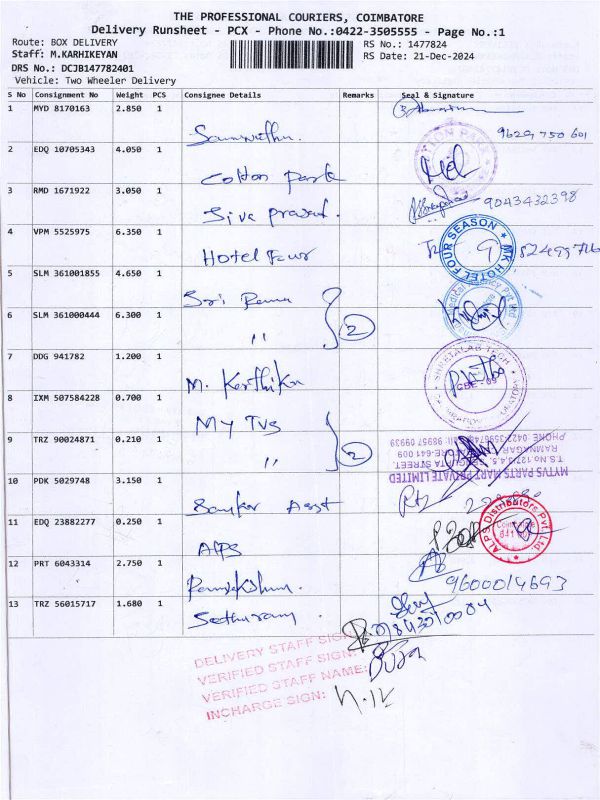 THE PROFESSIONAL COURIERS, COIMBATORE
Delivery Runsheet - PCX - Phone No.:0422-3505555 - Page No.:1
Route: BOX DELIVERY
RS No.: 1477824
Staff: M.KARHIKEYAN
RS Date: 21-Dec-2024
DRS No.: DCJB147782401
Vehicle: Two Wheeler Delivery
S No Consignment No Weight PCS Consignee Details Remarks Seal & Signature
1 MYD 8170163 2.850 1
9629 750 601
2 EDQ 10705343 4.050 1
Cotton Park
3 RMD 1671922 3.050 1
Siva prasad.
9043432398
4 VPM 5525975 6.350 1
Hotel Four
FOUR SEASON
HOTEL
5 SLM 361001855 4.650 1
Sri Rama
Pvt Ltd
6 SLM 361000444 6.300 1
,, 2
7 DDG 941782 1.200 1
M. Karthika
CBE-09
8 IXM 507584228 0.700 1
My TVS
9 TRZ 90024871 0.210 1
,, 2
MYTVS PARTS MART PRIVATE LIMITED
RAMNAGAR
10 PDK 5029748 3.150 1
11 EDQ 23882277 0.250 1
Alps
ALPS Distributors Pvt. Ltd.
12 PRT 6043314 2.750 1
9600014693
13 TRZ 56015717 1.680 1
Seethuram
DELIVERY STAFF SIGN:
VERIFIED STAFF SIGN:
VERIFIED STAFF NAME:
INCHARGE SIGN: